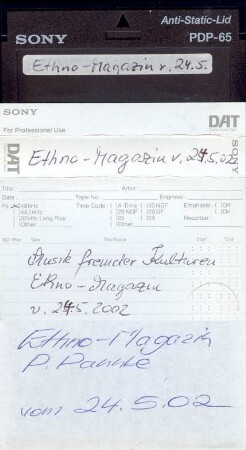 Anti-Static-Lid
SONY PDP-65
Ethno-Magazin v. 24.5.
SONY
For Professional Use
DAT Ethno-Magazin v. 24.5.02 DAT
SONY
Title: Artist:
Date: Tape No.: Engineer:
Fs 48kHz Time Code A-Time 30 NDF Emphasis On
44.1kHz 29 NDF 29 DF Off
32kHz Long Play 25 24 Recorder
Other Other
Musik fremder Kulturen
Ethno-Magazin
v. 24.5.2002
Ethno-Magazin
P. Pannke
vom 24.5.02